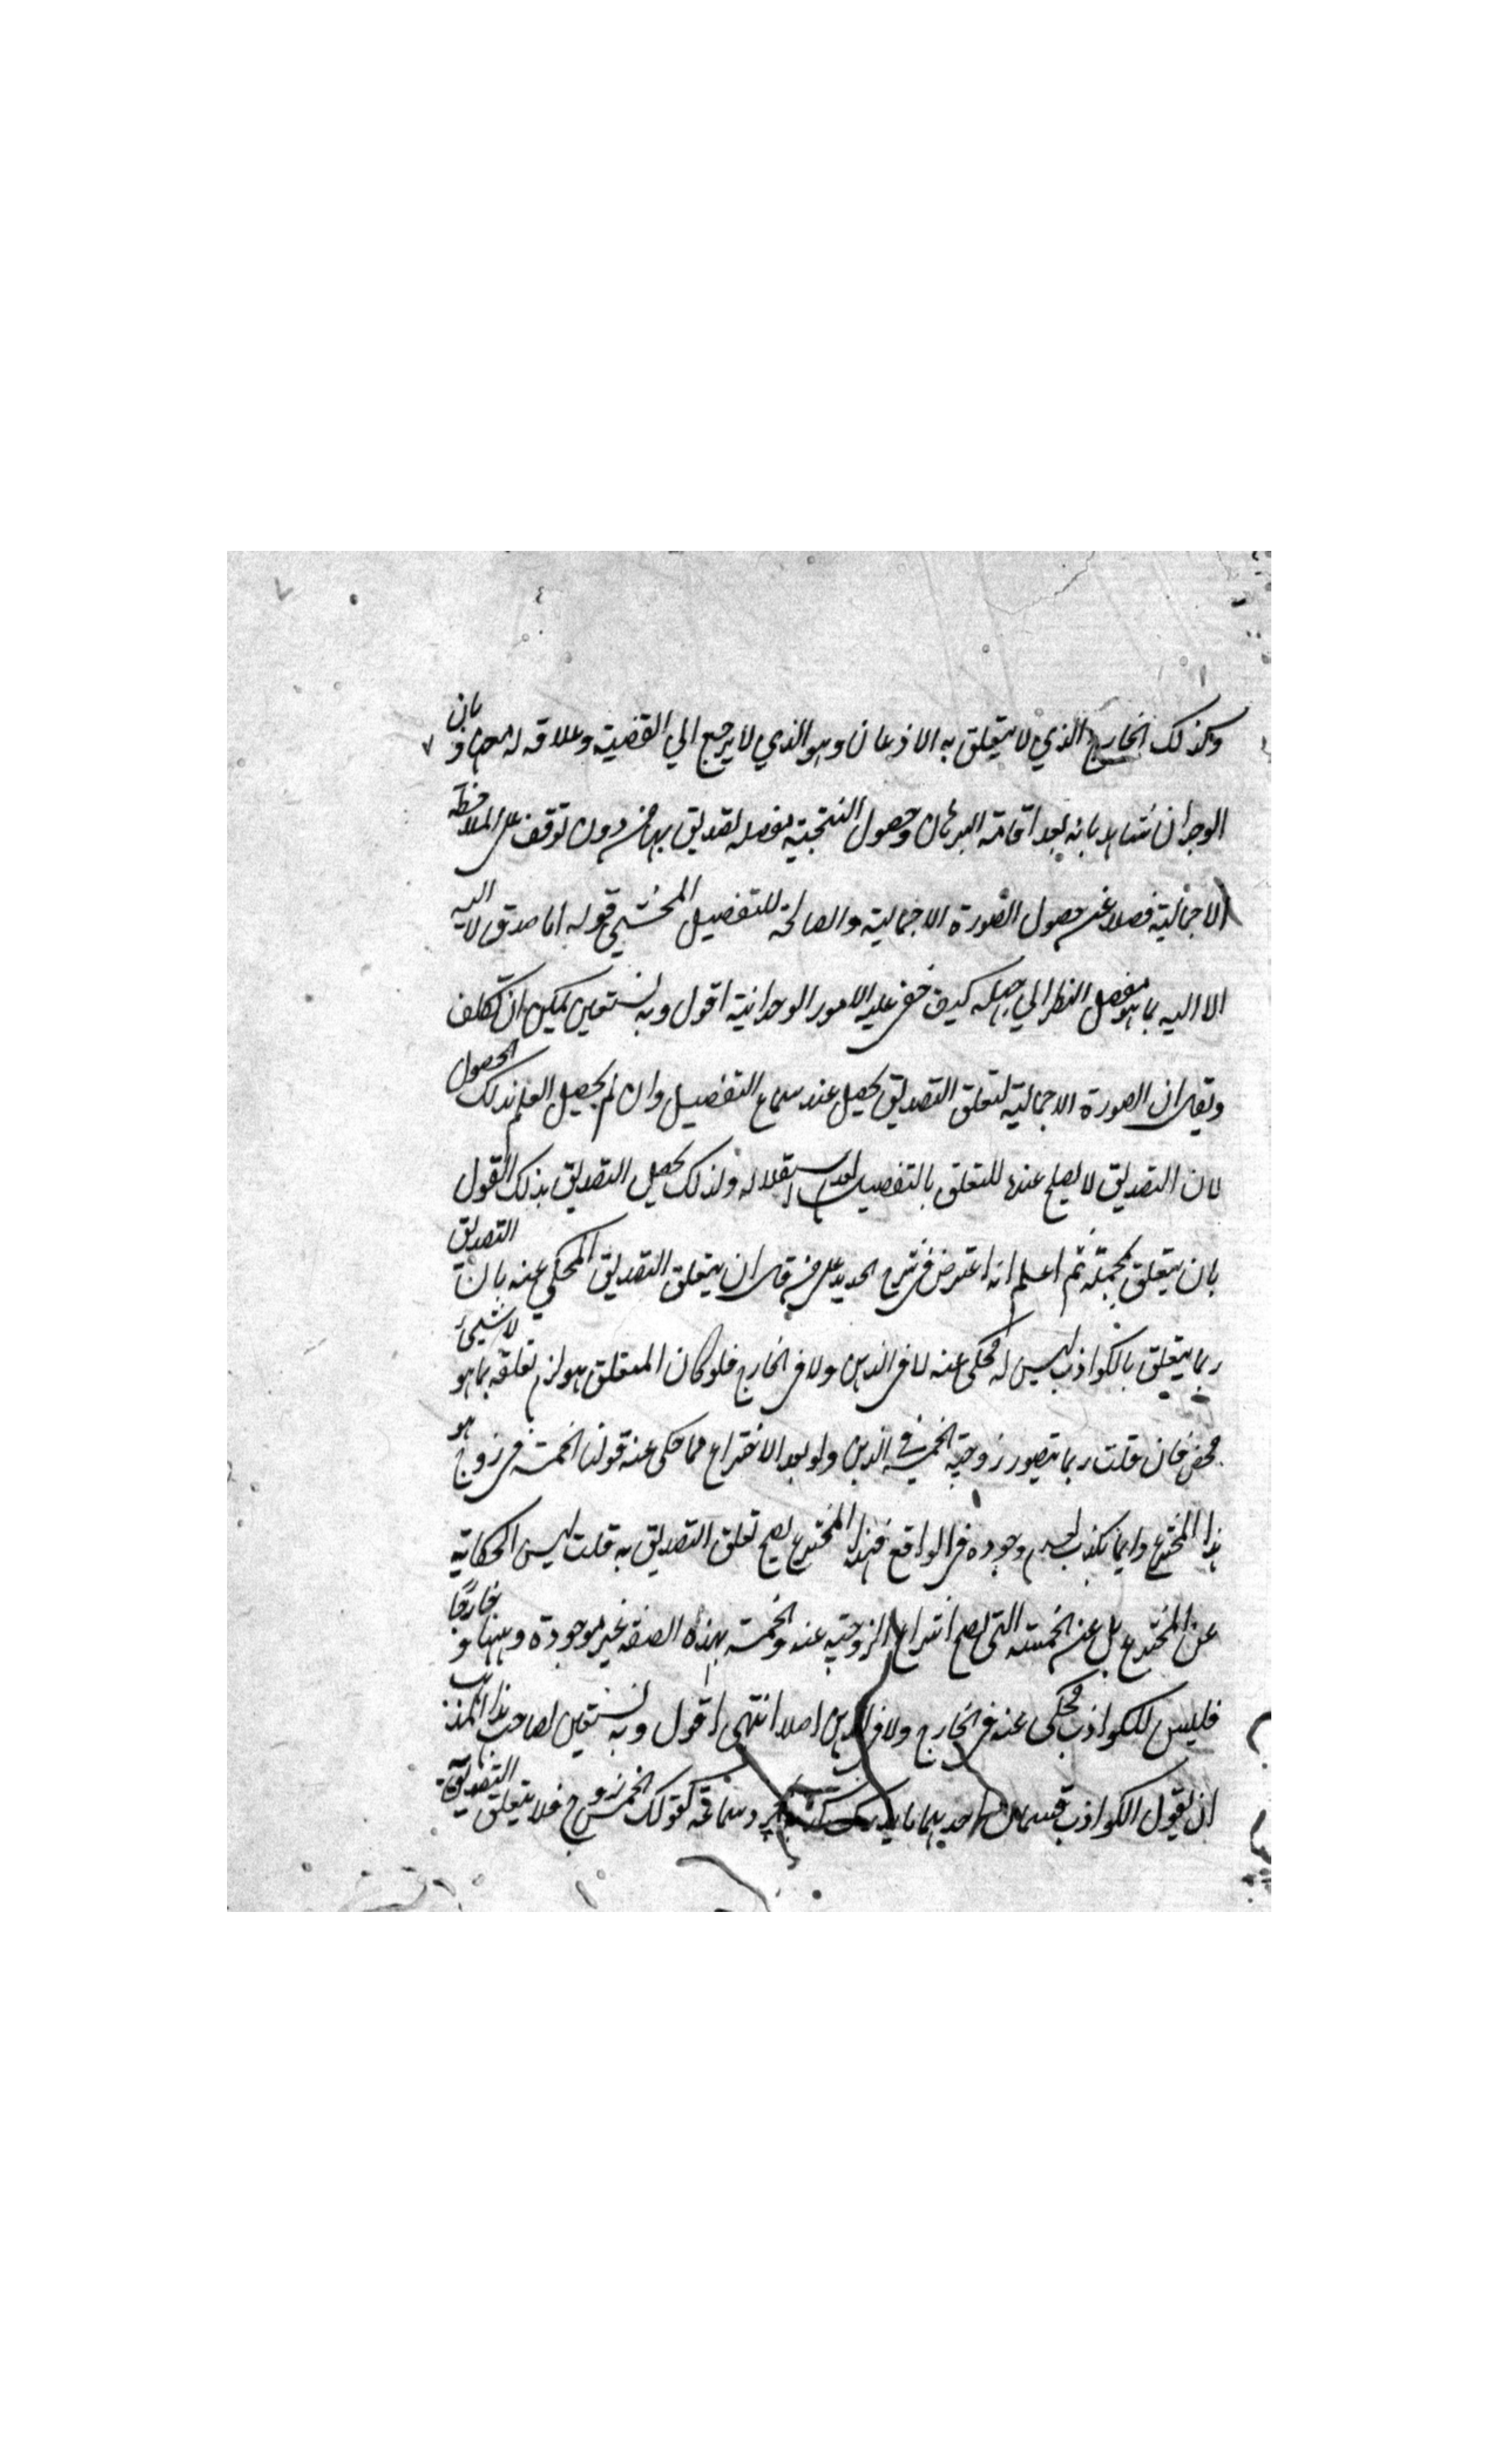 وكذلك الخارج الذي لا يتعلق به الاذعان وهو الذي لا يرجع الي القضية وعلاقه له معها و بان
الوجدان شاهد بانه بعد اقامة البرهان وحصول النتيجة مفصله تصديق بها من دون توقف على الملاحظة
الاجمالية فضلا عن حصول الصورة الاجمالية والصالحة للتفصيل المحشي قوله اما صدق لا اليه
الا اليه بما هو مفصل النظر الي كيف خفي عليه الامور الوحدانية اقول وبه نستعين يمكن ان تكلف
ويقال ان الصورة الاجمالية لتعلق التصديق يحصل عند سماع التفصيل وان لم يحصل العلم بذلك الحصول
لان التصديق لا يصلح عندنا للتعلق بالتفصيل لعدم استقلاله ولذلك يحصل التصديق بذلك القول
بان يتعلق بمجمله ثم اعلم انه اعترض في شرح الجديد على من قال ان يتعلق التصديق المحكي عنه بان التصديق
ربما يتعلق بالكواذب ليس له محكى عنه لا في الذهن ولا في الخارج فلو كان المتعلق هو لزم تعلقه بما هو لا شيئ
محض فان قلت ربما يتصور زوجية الخمسة في الذهن ولو بعد الاختراع فما حكى عنه قولنا الخمسة زوج هو
هذا المخترع وانما يكذب لعدم وجوده في الواقع فهذا المخترع يصح تعلق التصديق به قلت ليس الحكاية
عن المخترع بل عن الخمسة التي يصح انتزاع الزوجية عنه والخمسة بهذه الصفة غير موجودة ذهنا و خارجا
فليس للكواذب محكى عنه في الخارج ولا في الذهن اصلا انتهى اقول وبه نستعين لصاحب هذا المذهب
ان يقول الكواذب قسمان احديهما ما يدرك كذبه بمجرد سماعه كقولك الخمسة زوج فلا يتعلق التصديق